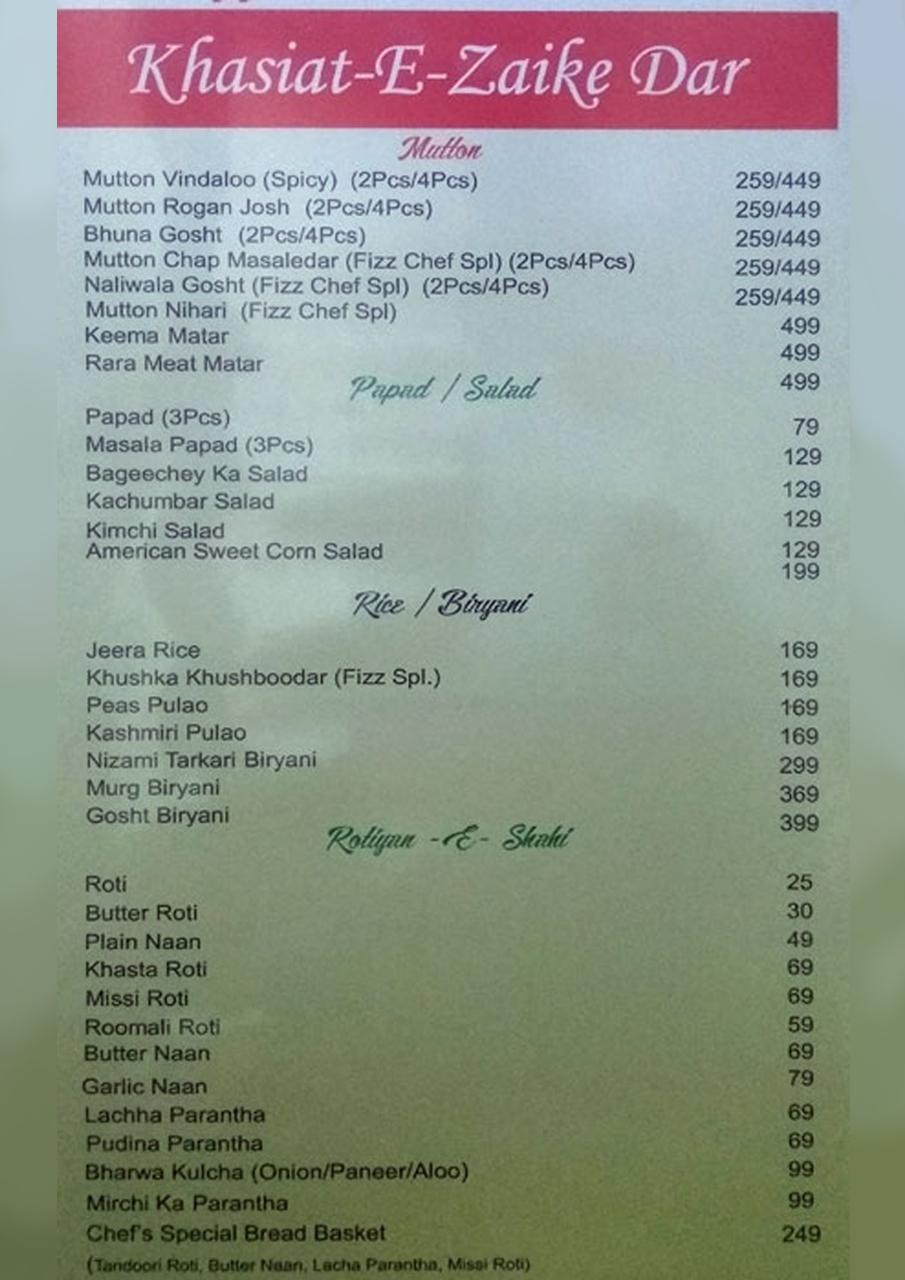 Khasiat-E-Zaike Dar
Mutton
Mutton Vindaloo (Spicy) (2Pcs/4Pcs) 259/449
Mutton Rogan Josh (2Pcs/4Pcs) 259/449
Bhuna Gosht (2Pcs/4Pcs) 259/449
Mutton Chap Masaledar (Fizz Chef Spl) (2Pcs/4Pcs) 259/449
Naliwala Gosht (Fizz Chef Spl) (2Pcs/4Pcs) 259/449
Mutton Nihari (Fizz Chef Spl) 499
Keema Matar 499
Rara Meat Matar 499
Papad / Salad
Papad (3Pcs) 79
Masala Papad (3Pcs) 129
Bageechey Ka Salad 129
Kachumbar Salad 129
Kimchi Salad 129
American Sweet Corn Salad 199
Rice / Biryani
Jeera Rice 169
Khushka Khushboodar (Fizz Spl.) 169
Peas Pulao 169
Kashmiri Pulao 169
Nizami Tarkari Biryani 299
Murg Biryani 369
Gosht Biryani 399
Rotiyan -E- Shahi
Roti 25
Butter Roti 30
Plain Naan 49
Khasta Roti 69
Missi Roti 69
Roomali Roti 59
Butter Naan 69
Garlic Naan 79
Lachha Parantha 69
Pudina Parantha 69
Bharwa Kulcha (Onion/Paneer/Aloo) 99
Mirchi Ka Parantha 99
Chef's Special Bread Basket 249
(Tandoori Roti, Butter Naan, Lacha Parantha, Missi Roti)